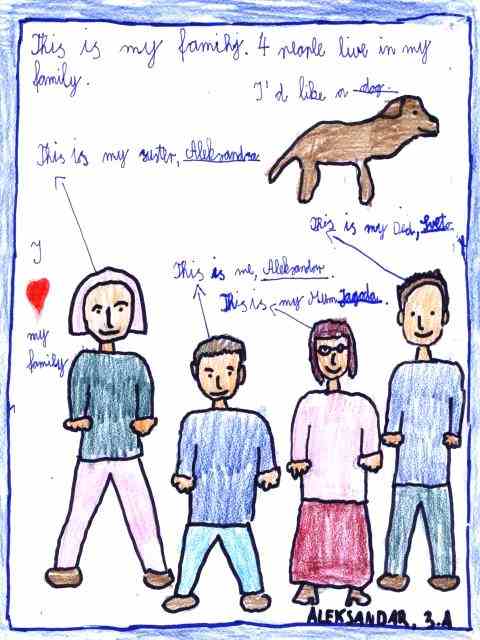 This is my family. 4 people live in my
family.
I'd like a dog.
This is my sister, Aleksandra
This is my Dad,
I
my
family
This is me, Aleksandar.
This is my Mum Jagoda.
ALEKSANDAR, 3.A